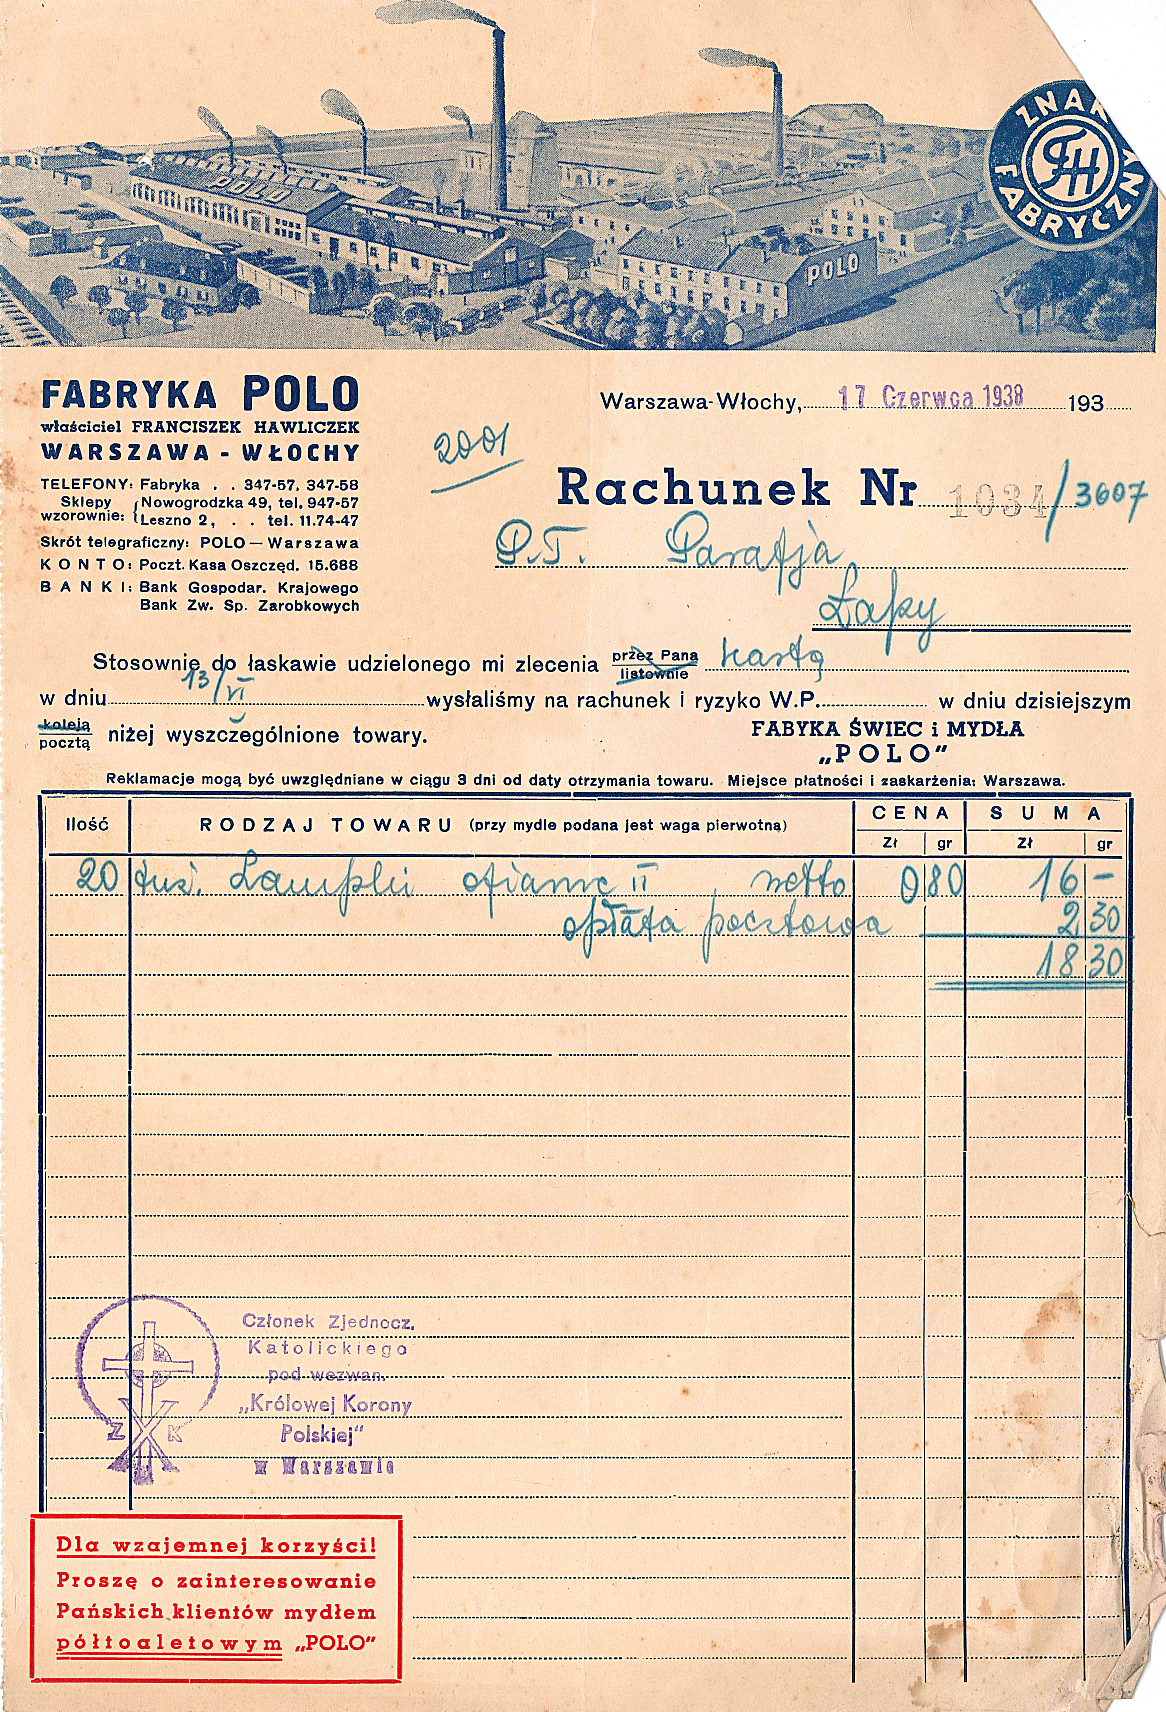 POLO
POLO
ZNAK FABRYCZNY
FH
FABRYKA POLO
właściciel FRANCISZEK HAWLICZEK
WARSZAWA - WŁOCHY
TELEFONY: Fabryka . . 347-57, 347-58
Sklepy wzorownie: Nowogrodzka 49, tel. 947-57
Leszno 2, . . tel. 11.74-47
Skrót telegraficzny: POLO — Warszawa
KONTO: Poczt. Kasa Oszczęd. 15.688
BANKI: Bank Gospodar. Krajowego
Bank Zw. Sp. Zarobkowych
Warszawa-Włochy, 17 Czerwca 1938 193
2001
Rachunek Nr 1034/3607
P.T. Parafja
Łapy
Stosownie do łaskawie udzielonego mi zlecenia przez Pana listownie kartą
w dniu 13/VI wysłaliśmy na rachunek i ryzyko W.P. w dniu dzisiejszym
koleją pocztą niżej wyszczególnione towary.
FABYKA ŚWIEC i MYDŁA
„POLO”
Reklamacje mogą być uwzględniane w ciągu 3 dni od daty otrzymania towaru. Miejsce płatności i zaskarżenia: Warszawa.
Ilość RODZAJ TOWARU (przy mydle podana jest waga pierwotna) CENA SUMA
Zł gr Zł gr
20 tuz. Lampki ofiarne II, netto 0 80 16 -
opłata pocztowa 2 30
18 30
Członek Zjednocz.
Katolickiego
pod wezwan.
„Królowej Korony
Polskiej”
w Warszawie
Z K
Dla wzajemnej korzyści!
Proszę o zainteresowanie
Pańskich klientów mydłem
półtoaletowym „POLO”